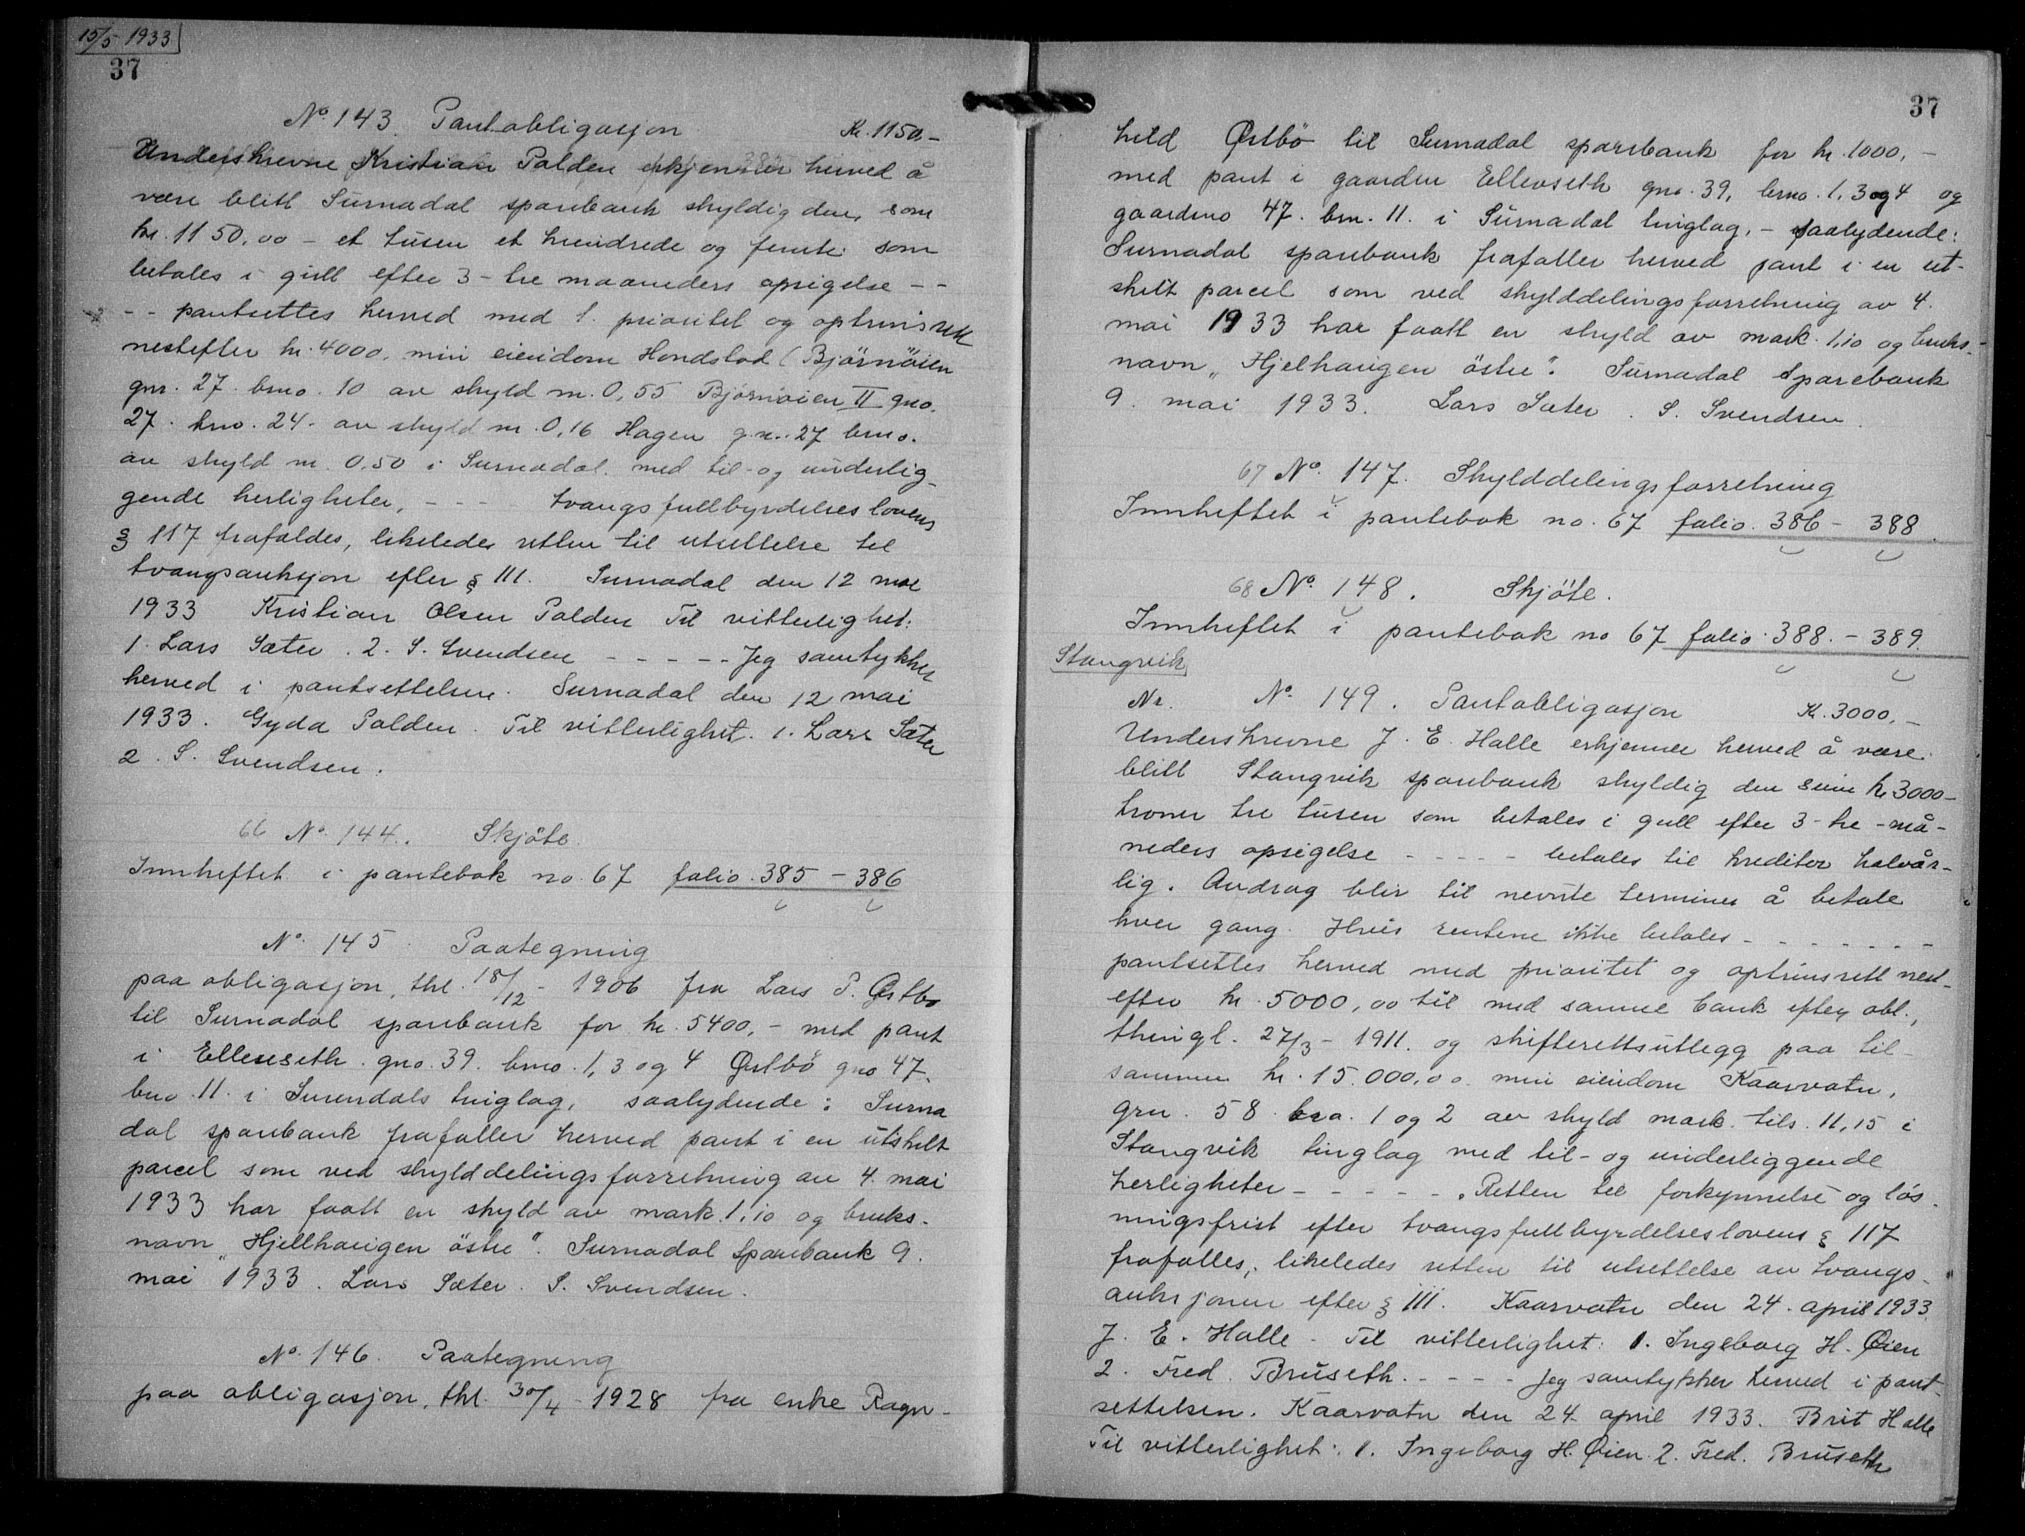 15/5 1933
37
No. 143. Pantobligasjon Kr. 1150.-
Underskrevne Kristian Polden erkjenner herved å
være blitt Surnadal sparebank skyldig den som
kr. 1150,00 - et tusen et hundrede og femti som
betales i gull efter 3 - tre maaneders opsigelse - -
- - pantsettes herved med 1. prioritet og optrinsrett
nestefter kr. 4000. min eiendom Hondslad (Björnöien
gnr. 27. brno. 10 av skyld m. 0,55 Bjørnøien II gno.
27. brno. 24. av skyld m. 0,16 Hagen gn. 27 brno.
av skyld m. 0.50 i Surnadal. med til- og underlig-
gende herligheter, - - - tvangsfullbyrdelseslovens
§ 117 frafaldes, likeledes retten til utsettelse til
tvangsauksjon efter § 111. Surnadal den 12 mai
1933 Kristian Olsen Polden Til vitterlighet:
1. Lars Sæter. 2. S. Svendsen - - - - - Jeg samtykker
herved i pantsettelsen. Surnadal den 12 mai
1933. Gyda Polden. Til vitterlighet. 1. Lars Sæter
2. S. Svendsen.
66 No. 144. Skjöte.
Innheftet i pantebok no. 67 folio. 385 - 386
No. 145. Paategning
paa obligasjon, thl. 18/12 - 1906 fra Lars P. Østbø
til Surnadal sparebank for kr. 5400,- med pant
i Ellevseth. gno. 39. brno. 1, 3 og 4 Østbö gno 47.
bno. 11. i Surendals tinglag, saalydende: Surna
dal sparebank frafaller herved pant i en utskilt
parcel som ved skylddelingsforretning av 4. mai
1933 har faatt en skyld av mark. 1,10 og bruks-
navn „Hjellhaugen östre". Surnadal Sparebank 9.
mai 1933. Lars Sæter. S. Svendsen.
No. 146. Paategning
paa obligasjon, thl. 30/4 - 1928 fra enke Ragn-
37
hild Østbö til Surnadal sparebank for kr. 1000,-
med pant i gaarden Ellevseth gno. 39, brno. 1, 3 og 4 og
gaardno 47. brn. 11. i Surnadal tinglag, - saalydende:
Surnadal sparebank frafaller herved pant i en ut-
skilt parcel som ved skylddelingsforretning av 4.
mai 1933 har faatt en skyld av mark. 1,10 og bruks-
navn „Hjelhaugen östre". Surnadal Sparebank
9. mai 1933. Lars Sæter. S. Svendsen.
67 No. 147. Skylddelingsforretning
Innheftet i pantebok no. 67 folio. 386 - 388.
68 No. 148. Skjöte.
Innheftet i pantebok no 67 folio. 388. - 389.
Stangvik
Nr. No. 149. Pantobligasjon Kr. 3000,-
Underskrevne J. E. Halle erkjenner herved å være
blitt Stangvik sparebank skyldig den sum kr 3000-
kroner tre tusen som betales i gull efter 3 - tre - må-
neders opsigelse - - - - - betales til kreditor halvår-
lig. Avdrag blir til nevnte terminer å betale
hver gang. Hvis rentene ikke betales - - - - - - -
pantsettes herved med prioritet og optrinsrett nest-
efter kr. 5000,00 til med samme bank efter obl.,
thingl. 27/3 - 1911. og skifterettsutlegg paa til-
sammen kr. 15.000,00 min eiendom Kaarvatn,
grn. 58 bra. 1 og 2 av skyld mark. tils. 11,15 i
Stangvik tinglag med til- og underliggende
herligheter - - - - -. Retten til forkynnelse og løs-
ningsfrist efter tvangsfullbyrdelseslovens § 117
frafalles, likeledes retten til utsettelse av tvangs-
auksjonen efter § 111. Kaarvatn den 24. april 1933.
J. E. Halle - Til vitterlighet: 1. Ingeborg H. Øien
2. Fred. Bruseth. - - - - Jeg samtykker herved i pant-
settelsen. Kaarvatn den 24. april 1933. Brit Halle
Til vitterlighet: 1. Ingeborg H. Øien. 2. Fred. Bruseth